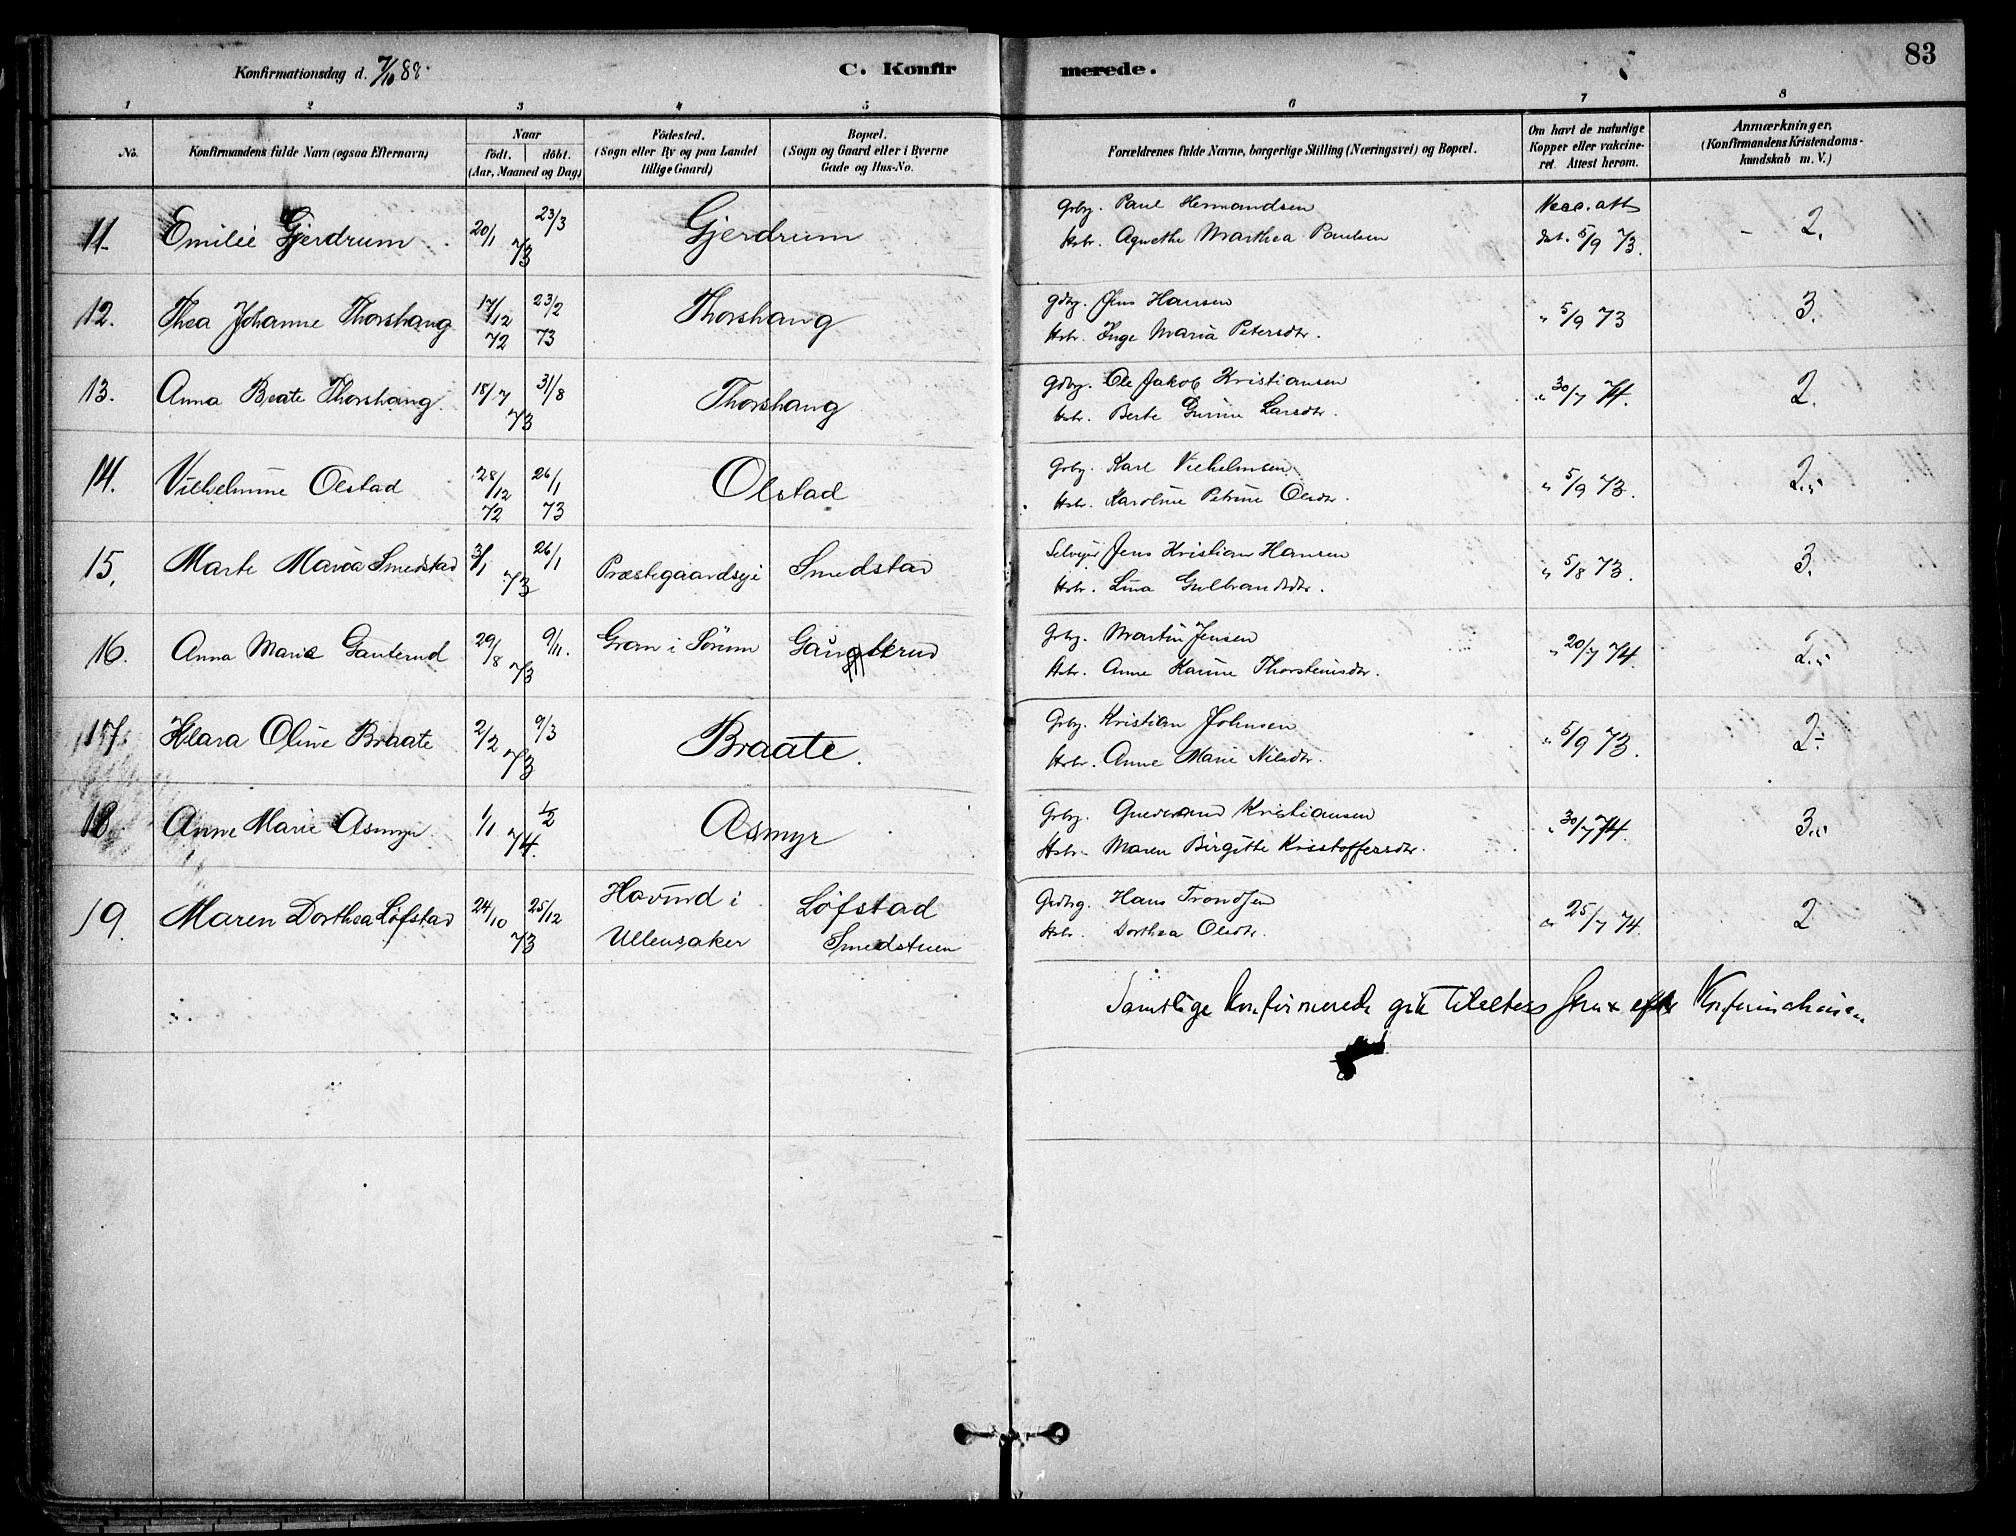 83
Konfirmationsdag d. 7/10 88. C. Konfirmerede.
1 2 3 4 5 6 7 8
No. Konfirmandens fulde Navn (ogsaa Efternavn) Naar født. døbt. (Aar, Maaned og Dag) Fødested. (Sogn eller By og paa Landet tillige Gaard) Bopæl. (Sogn og Gaard eller i Byerne Gade og Hus-No. Forældrenes fulde Navne, borgerlige Stilling (Næringsvei) og Bopæl. Om havt de naturlige Kopper eller vakcineret. Attest herom. Anmærkninger. (Konfirmandens Kristendomskundskab m. V.)
11. Emilie Gjerdrum 20/1 23/3 73 Gjerdrum Grbg. Paul Hermandsen Hstr. Agnethe Marthea Paulsen Vacc. att. dat. 5/9 73. 2.
12. Thea Johanne Thorshaug 17/12 72 23/2 73 Thorshaug Gdbg. Jens Hansen Hstr. Inge Maria Petersdtr. " 5/9 73 3.
13. Anna Beate Thorshaug. 18/7 31/8 73 Thorshaug Gdbg. Ole Jakob Kristiansen Hstr. Berte Gurine Larsdtr. " 30/7 74. 2.
14. Vilhelmine Olstad 28/12 72 26/1 73 Olstad Grbg. Karl Vilhelmsen Hstr. Karoline Petrine Olsdtr. " 5/9 73. 2.
15. Marte Maria Smedstad 3/1 26/1 73 Præstegaardseje Smedstad Selvejer Jens Kristian Hansen Hstr. Lina Gulbrandsdtr. " 5/8 73. 3.
16. Anna Marie Gauterud 29/8 9/11. 73 Gran i Sørum Grbg. Martin Jensen Hstr. Anne Karine Thorsteinsdtr. " 20/7 74. 2.
17. Klara Oline Braate 2/2 9/3 73 Braate. Grbg. Kristian Johnsen Hstr. Anne Marie Nilsdtr. " 5/9 73. 2.
18. Anne Marie Asmyr. 1/1 1/2 74. Asmyr Grbg. Kristiansen Hstr. Maren Birgitte Kristoffersdtr. " 30/7 74. 3.
19. Maren Dorthea Løfstad 24/10 25/12 73 Hovind i Ullensaker Løfstad Smedstuen Gdbg. Hans Trondsen Hstr. Dorthea Olsdtr. " 25/7 74. 2
Samtlige Konfirmerede gik tilalters strax efter Konfirmationen